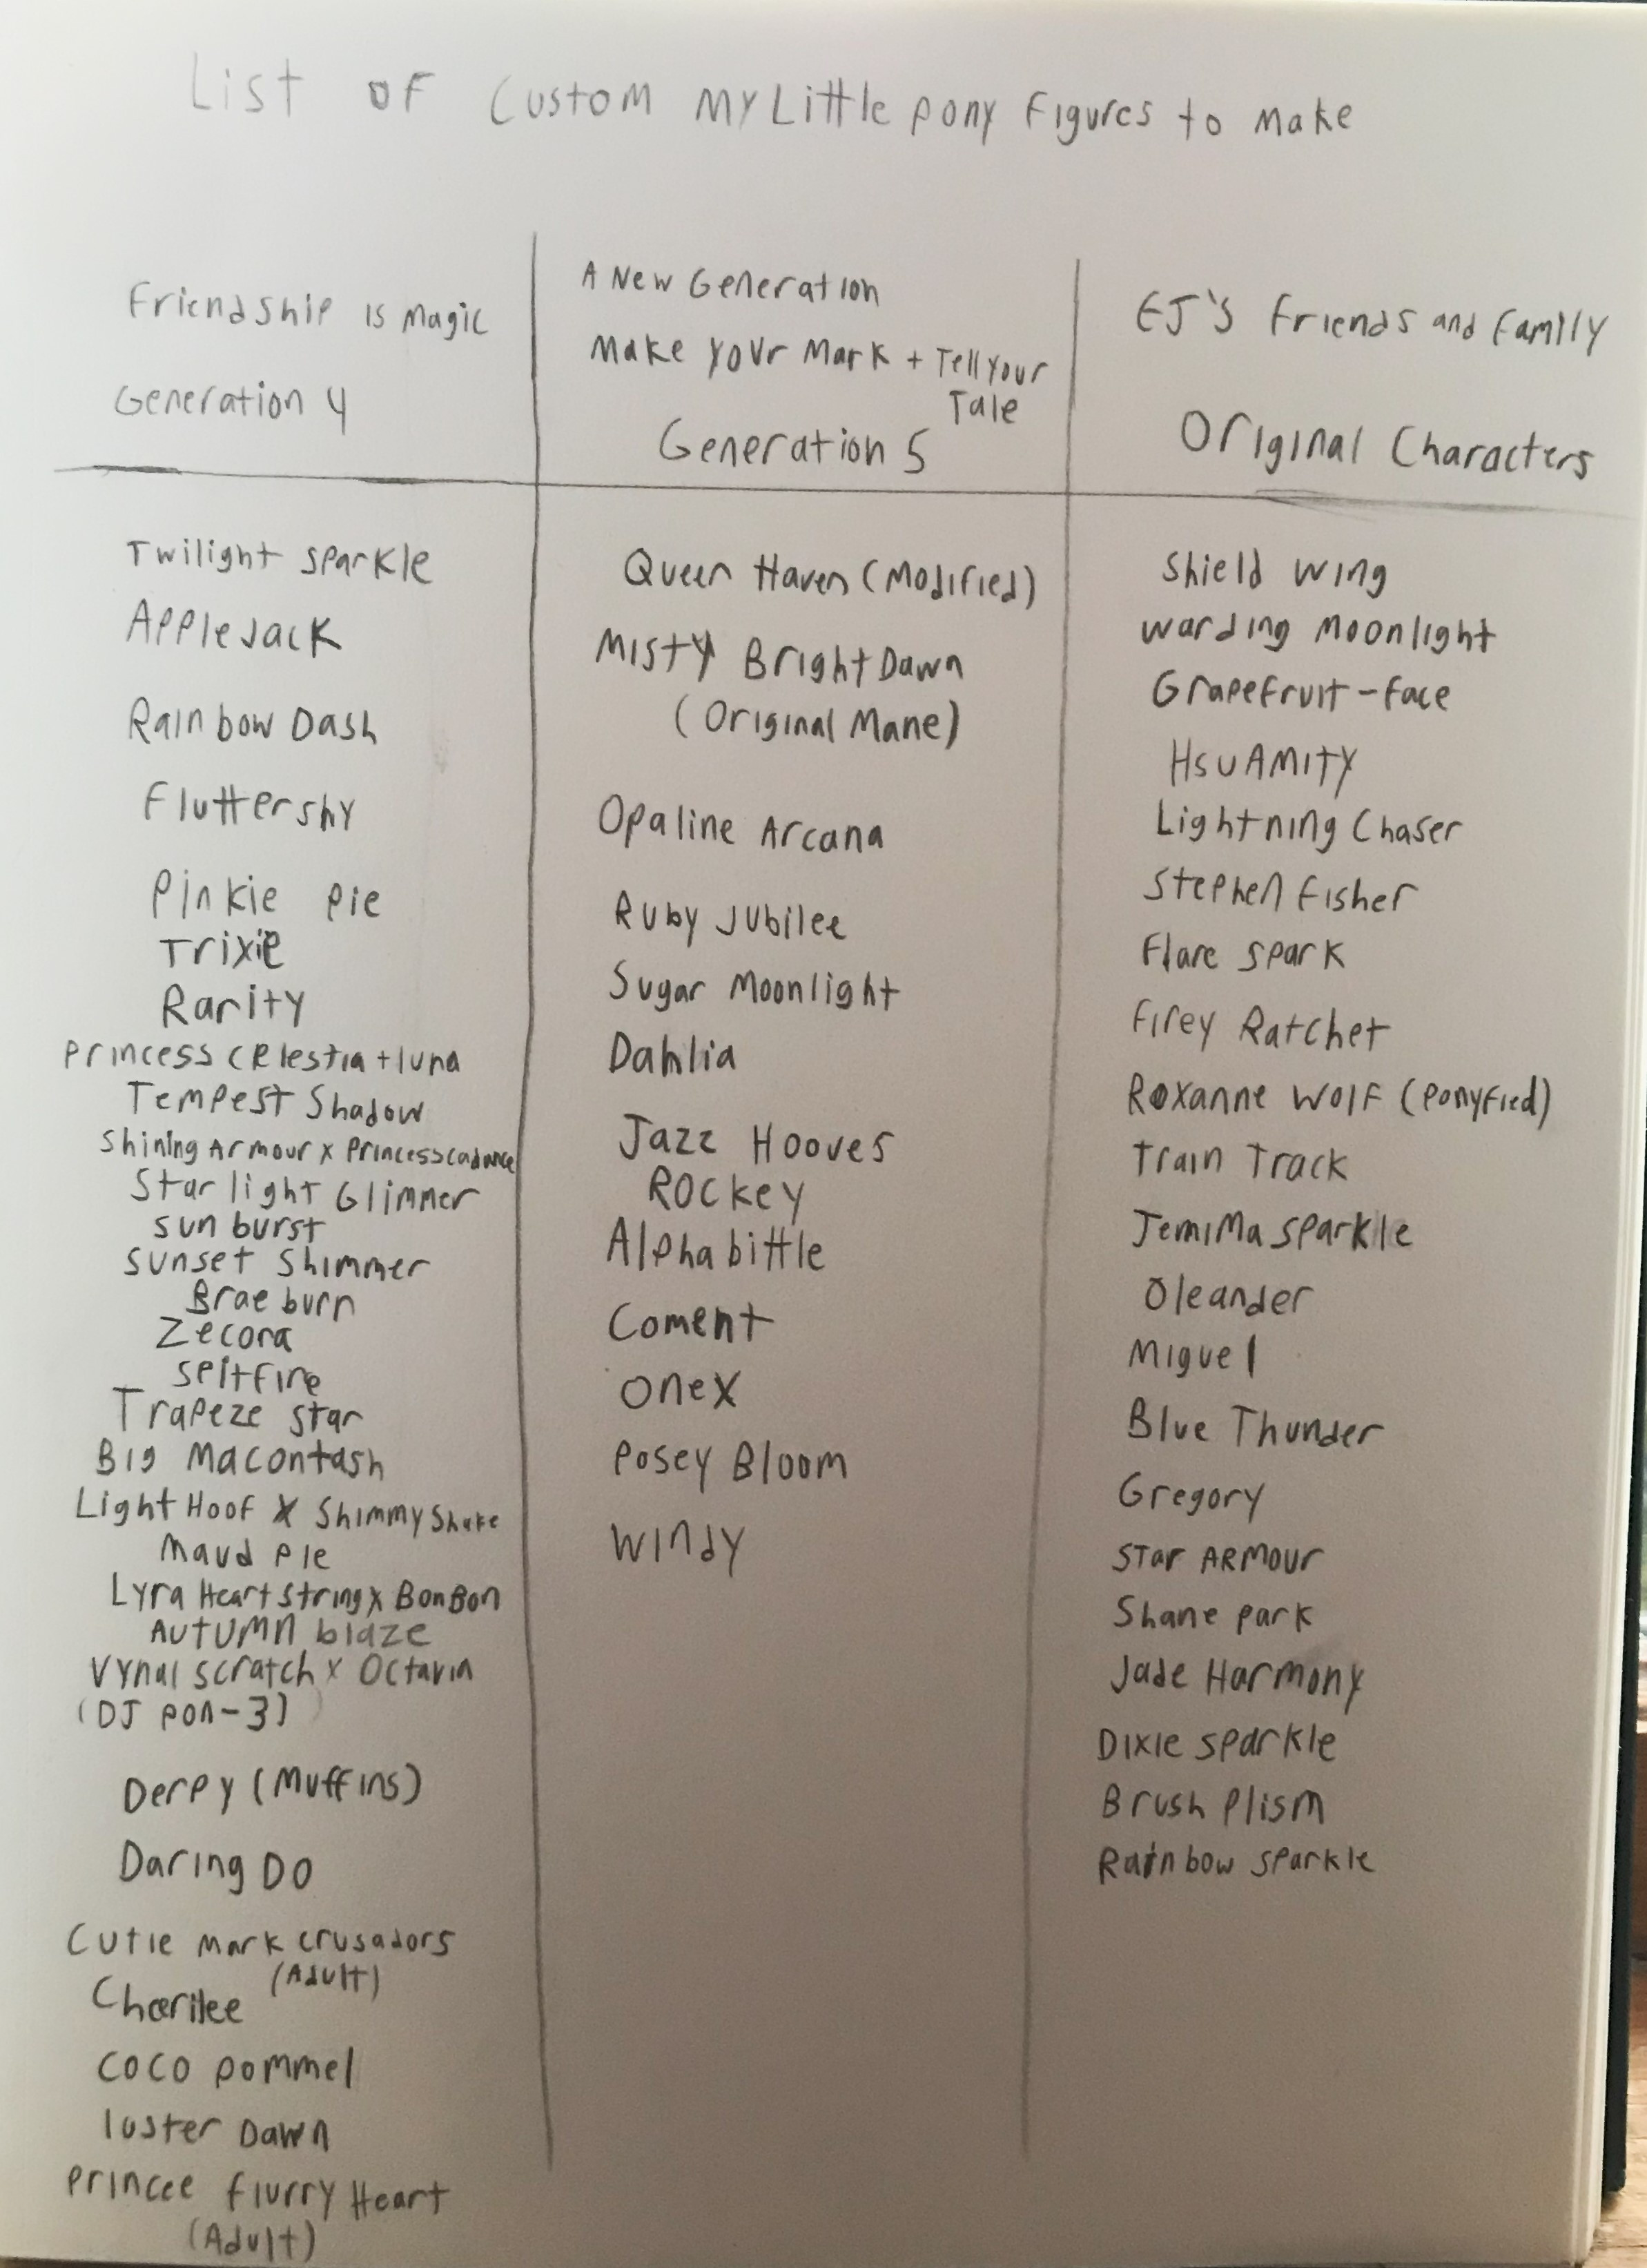 List of Custom My Little Pony Figures to Make
Friendship is Magic
Generation 4
Twilight Sparkle
AppleJack
Rainbow Dash
Fluttershy
Pinkie Pie
Trixie
Rarity
Princess Celestia + luna
Tempest Shadow
Shining Armour x Princess cadance
Starlight Glimmer
sun burst
sunset shimmer
Brae burn
Zecora
Spitfire
Trapeze star
Big Macontash
Light Hoof x Shimmy Shake
Maud Pie
Lyra Heart String x BonBon
Autumn blaze
Vynal scratch x Octavia
(DJ pon-3)
Derpy (Muffins)
Daring Do
Cutie Mark crusadors
(Adult)
Cheerilee
coco pommel
luster Dawn
Princee flurry Heart
(Adult)
A New Generation
Make your Mark + Tell your
Tale
Generation 5
Queen Haven (Modified)
Misty BrightDawn
(Original Mane)
Opaline Arcana
Ruby Jubilee
Sugar Moonlight
Dahlia
Jazz Hooves
Rockey
Alphabittle
Coment
Onex
Posey Bloom
Windy
EJ's Friends and Family
Original Characters
Shield Wing
Warding Moonlight
Grapefruit-face
HsuAmity
Lightning Chaser
Stephen Fisher
Flare Spark
Firey Ratchet
Roxanne Wolf (Ponyfied)
Train Track
Jemima Sparkle
Oleander
Miguel
Blue Thunder
Gregory
Star Armour
Shane Park
Jade Harmony
Dixie Sparkle
Brush Plism
Rainbow Sparkle